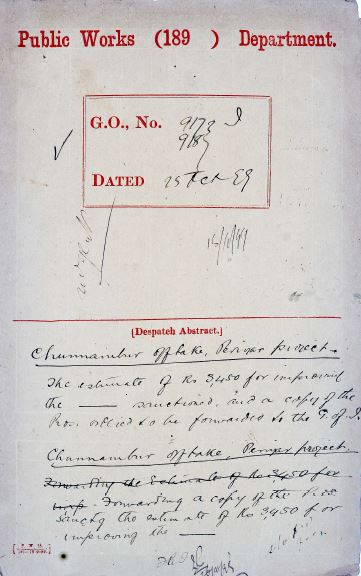 Public Works (189 ) Department.
G.O., No. 9173 I
9187
DATED 25 Oct 99
[Despatch Abstract.]
Chunnambur offtake, Periyar project.
The estimate of Rs 3,450 for improving
the — sanctioned, and a copy of the
Pro. ordered to be forwarded to the G. of I.
Chunnambur offtake, Periyar project.
Forwarding the Estimate of Rs 3,450 for
imp. Forwarding a copy of the Pro.
sanctg the estimate of Rs 3,450 for
improving the —